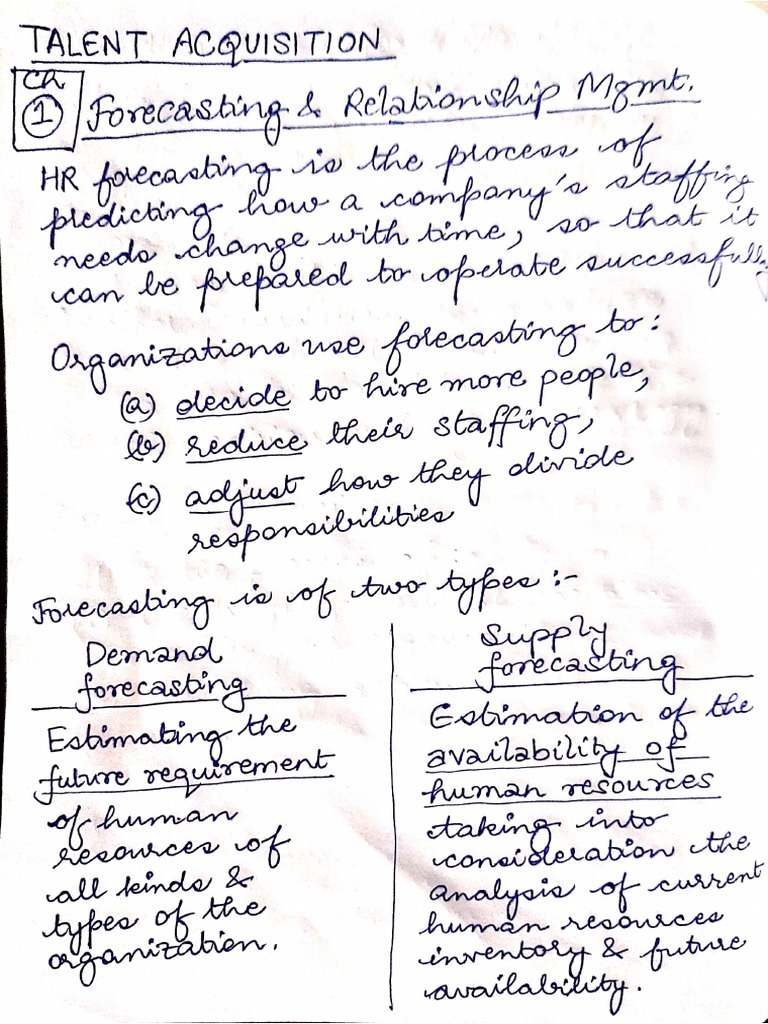 TALENT ACQUISITION
Ch
1 Forecasting & Relationship Mgmt.
HR forecasting is the process of
predicting how a company's staffing
needs change with time, so that it
can be prepared to operate successfully
Organizations use forecasting to:
(a) decide to hire more people,
(b) reduce their staffing,
(c) adjust how they divide
responsibilities
Forecasting is of two types :-
Demand
forecasting
Estimating the
future requirement
of human
resources of
all kinds &
types of the
organization.
Supply
forecasting
Estimation of the
availability of
human resources
taking into
consideration the
analysis of current
human resources
inventory & future
availability.